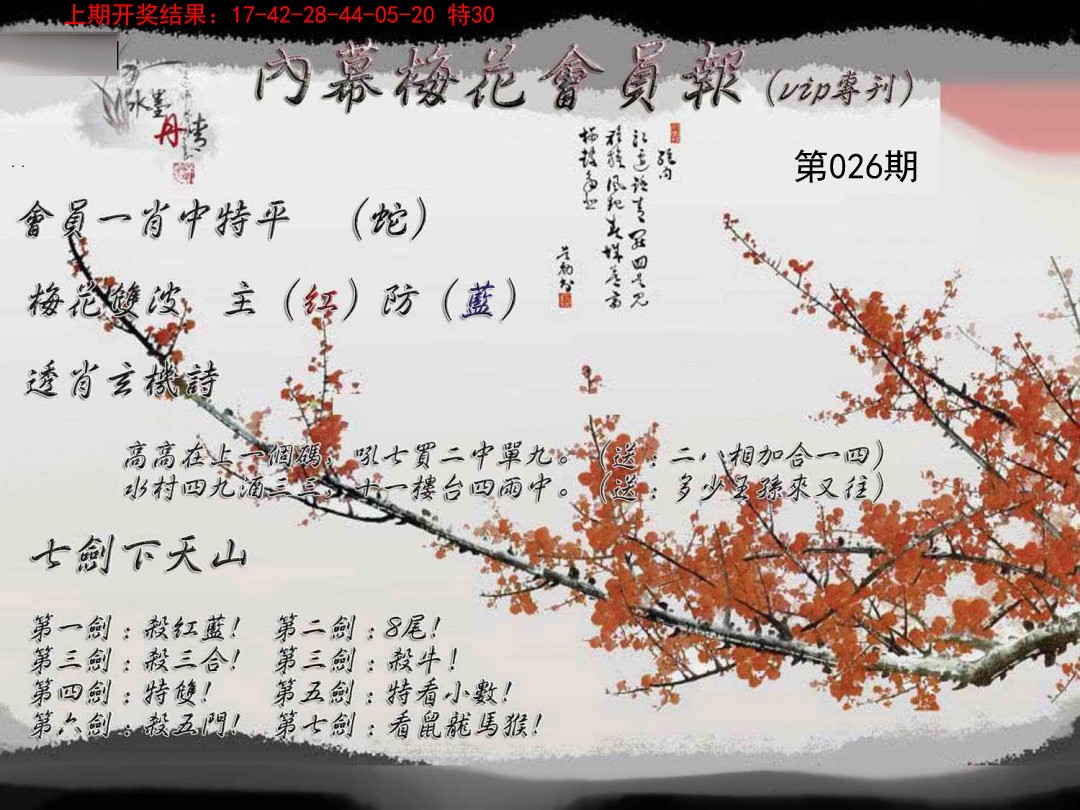 上期开奖结果：17-42-28-44-05-20 特30
內幕梅花會員報（vip專刊）
水墨丹青
第026期
會員一肖中特平 （蛇）
梅花雙波 主（紅）防（藍）
透肖玄機詩
高高在上一個碼，吼七買二中單九。（送：二八相加合一四）
水村四九酒三三，十一樓台四雨中。（送：多少王孫來又往）
七劍下天山
第一劍：殺紅藍！ 第二劍：8尾！
第三劍：殺三合！ 第三劍：殺牛！
第四劍：特雙！ 第五劍：特看小數！
第六劍：殺五門！ 第七劍：看鼠龍馬猴！